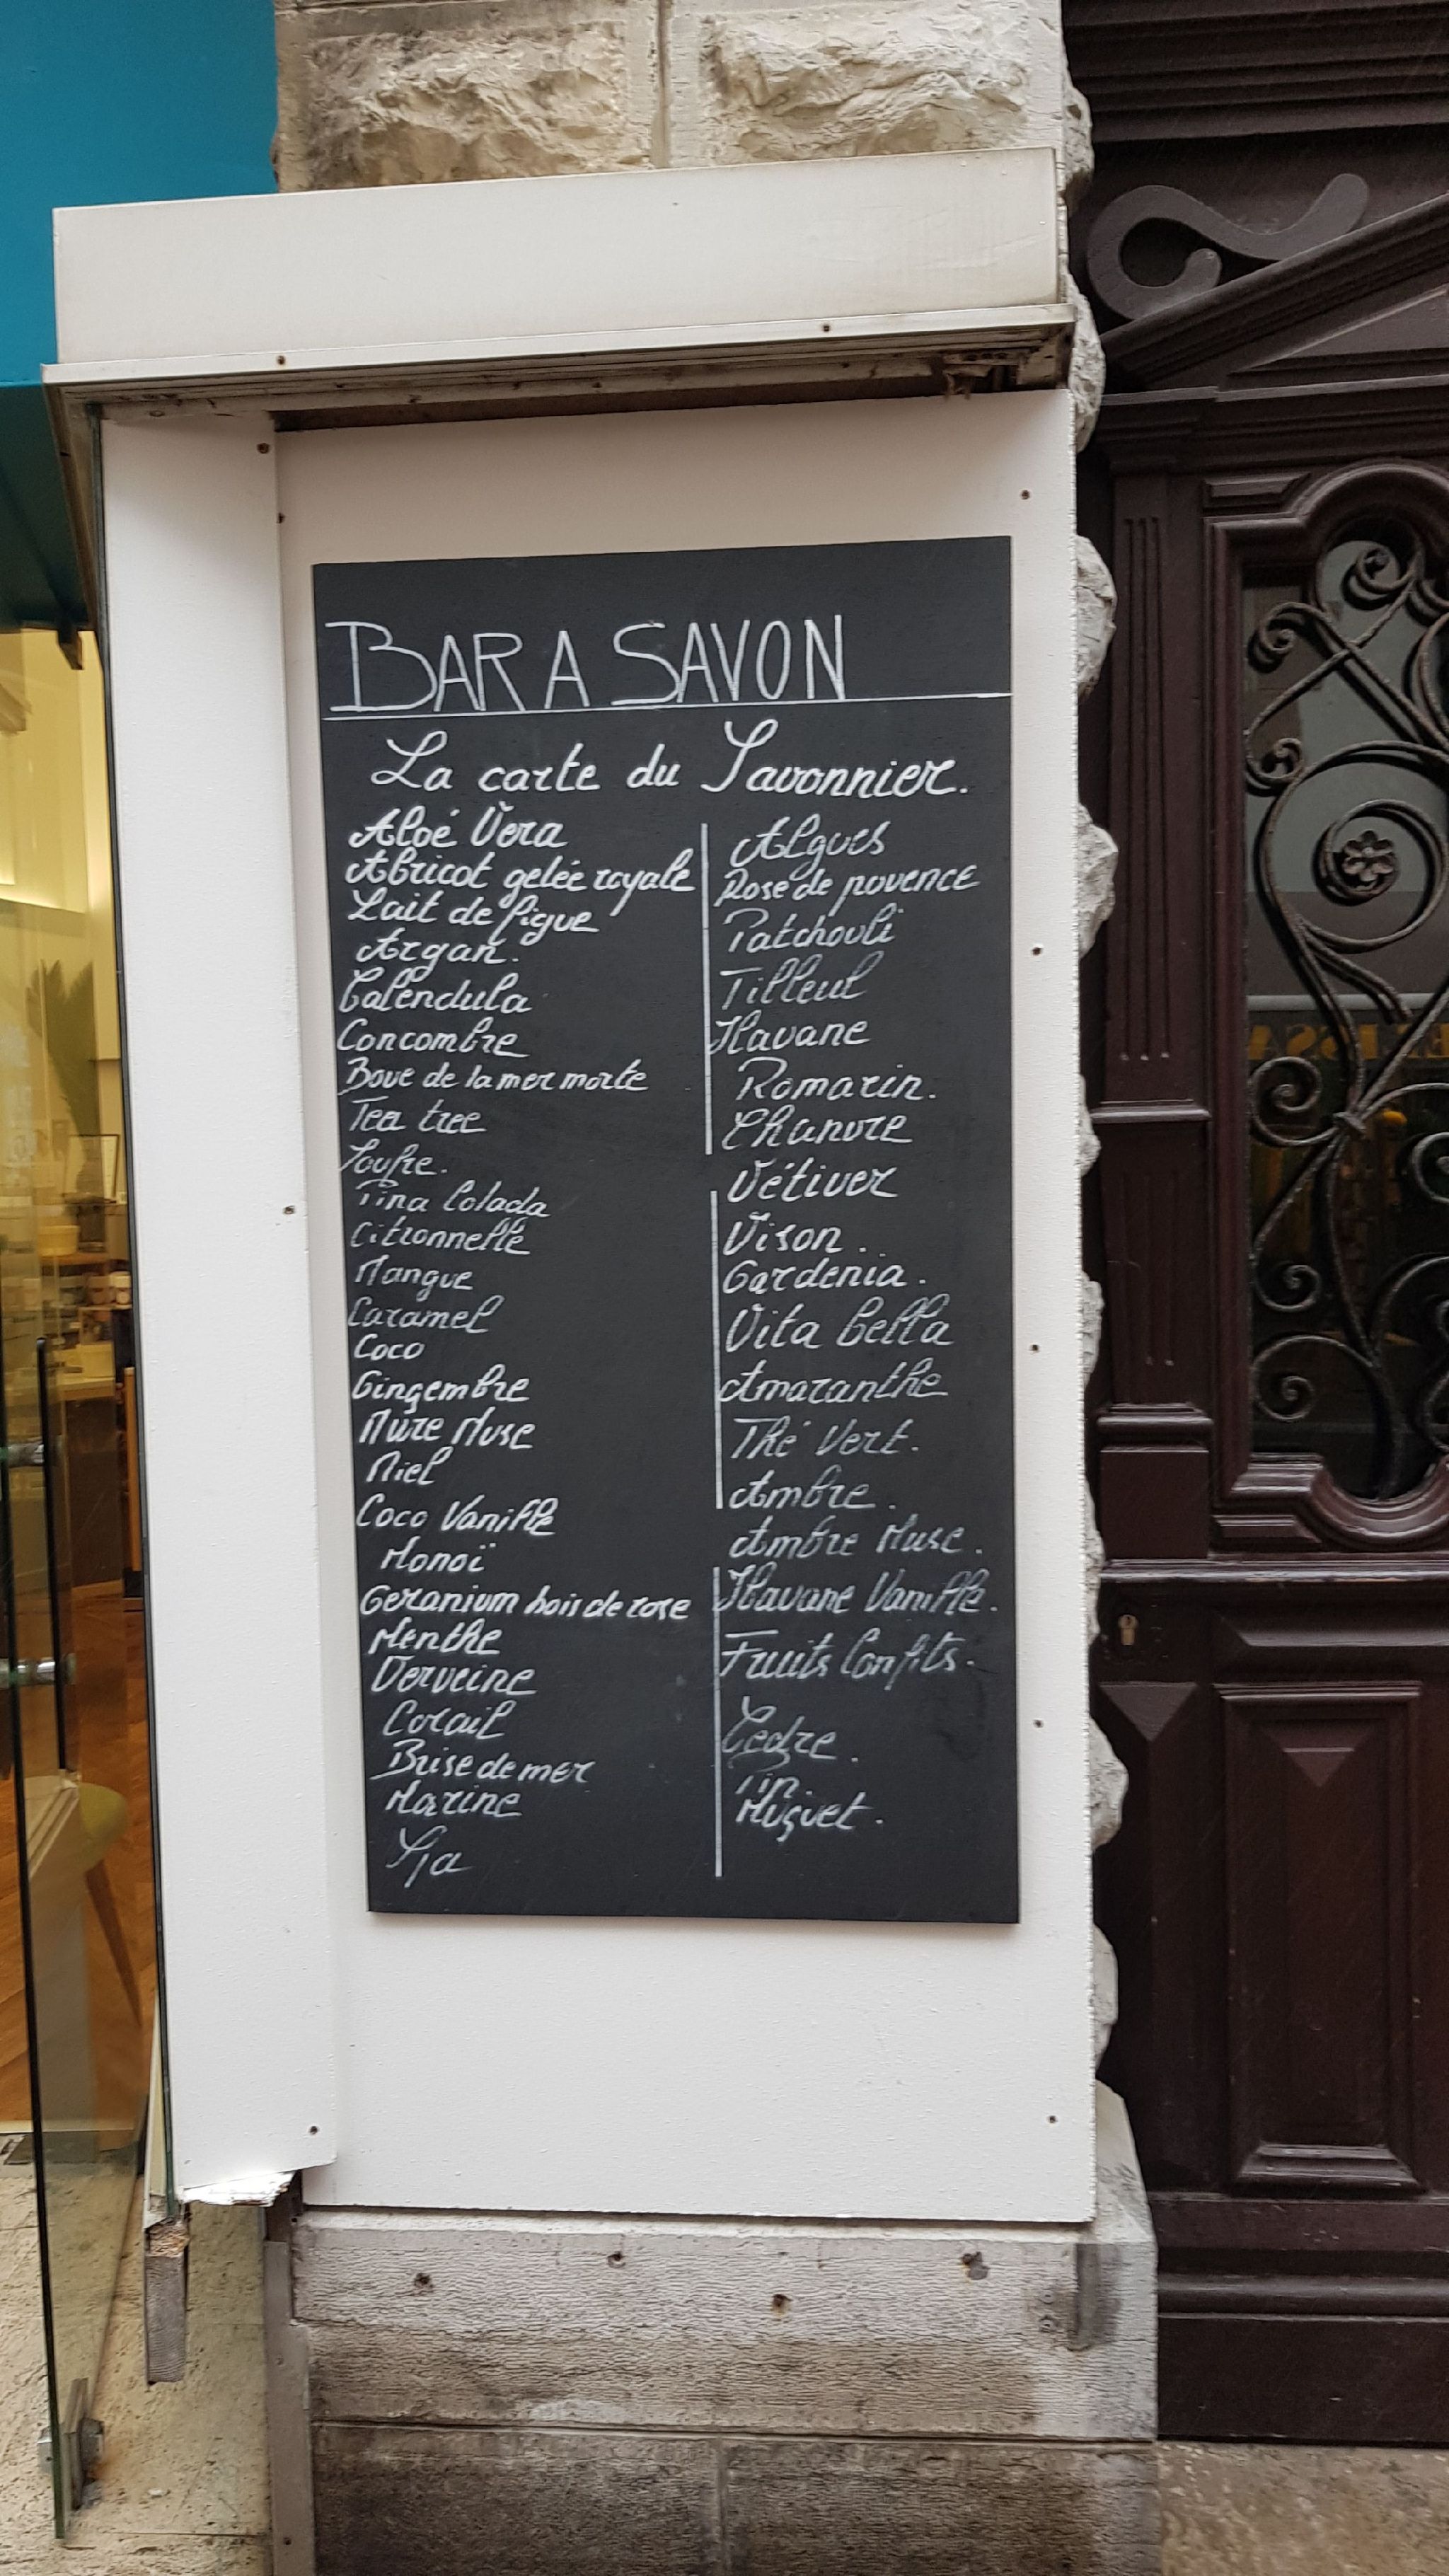 BAR A SAVON
La carte du Savonnier.
Aloé Vera
Abricot gelée royale
Lait de figue
Argan.
Calendula
Concombre
Boue de la mer morte
Tea tree
Soufre.
Pina Colada
Citronnelle
Mangue
Caramel
Coco
Gingembre
Mûre Musc
Miel
Coco Vanille
Monoï
Geranium bois de rose
Menthe
Verveine
Corail
Brise de mer
Marine
Algues
Rose de povence
Patchouli
Tilleul
Havane
Romarin.
Chanvre
Vétiver
Vison.
Gardenia.
Vita bella
Amaranthe
Thé Vert.
Ambre.
Ambre Musc.
Havane Vanille.
Fruits Confits.
Cedre.
Pin.
Muguet.